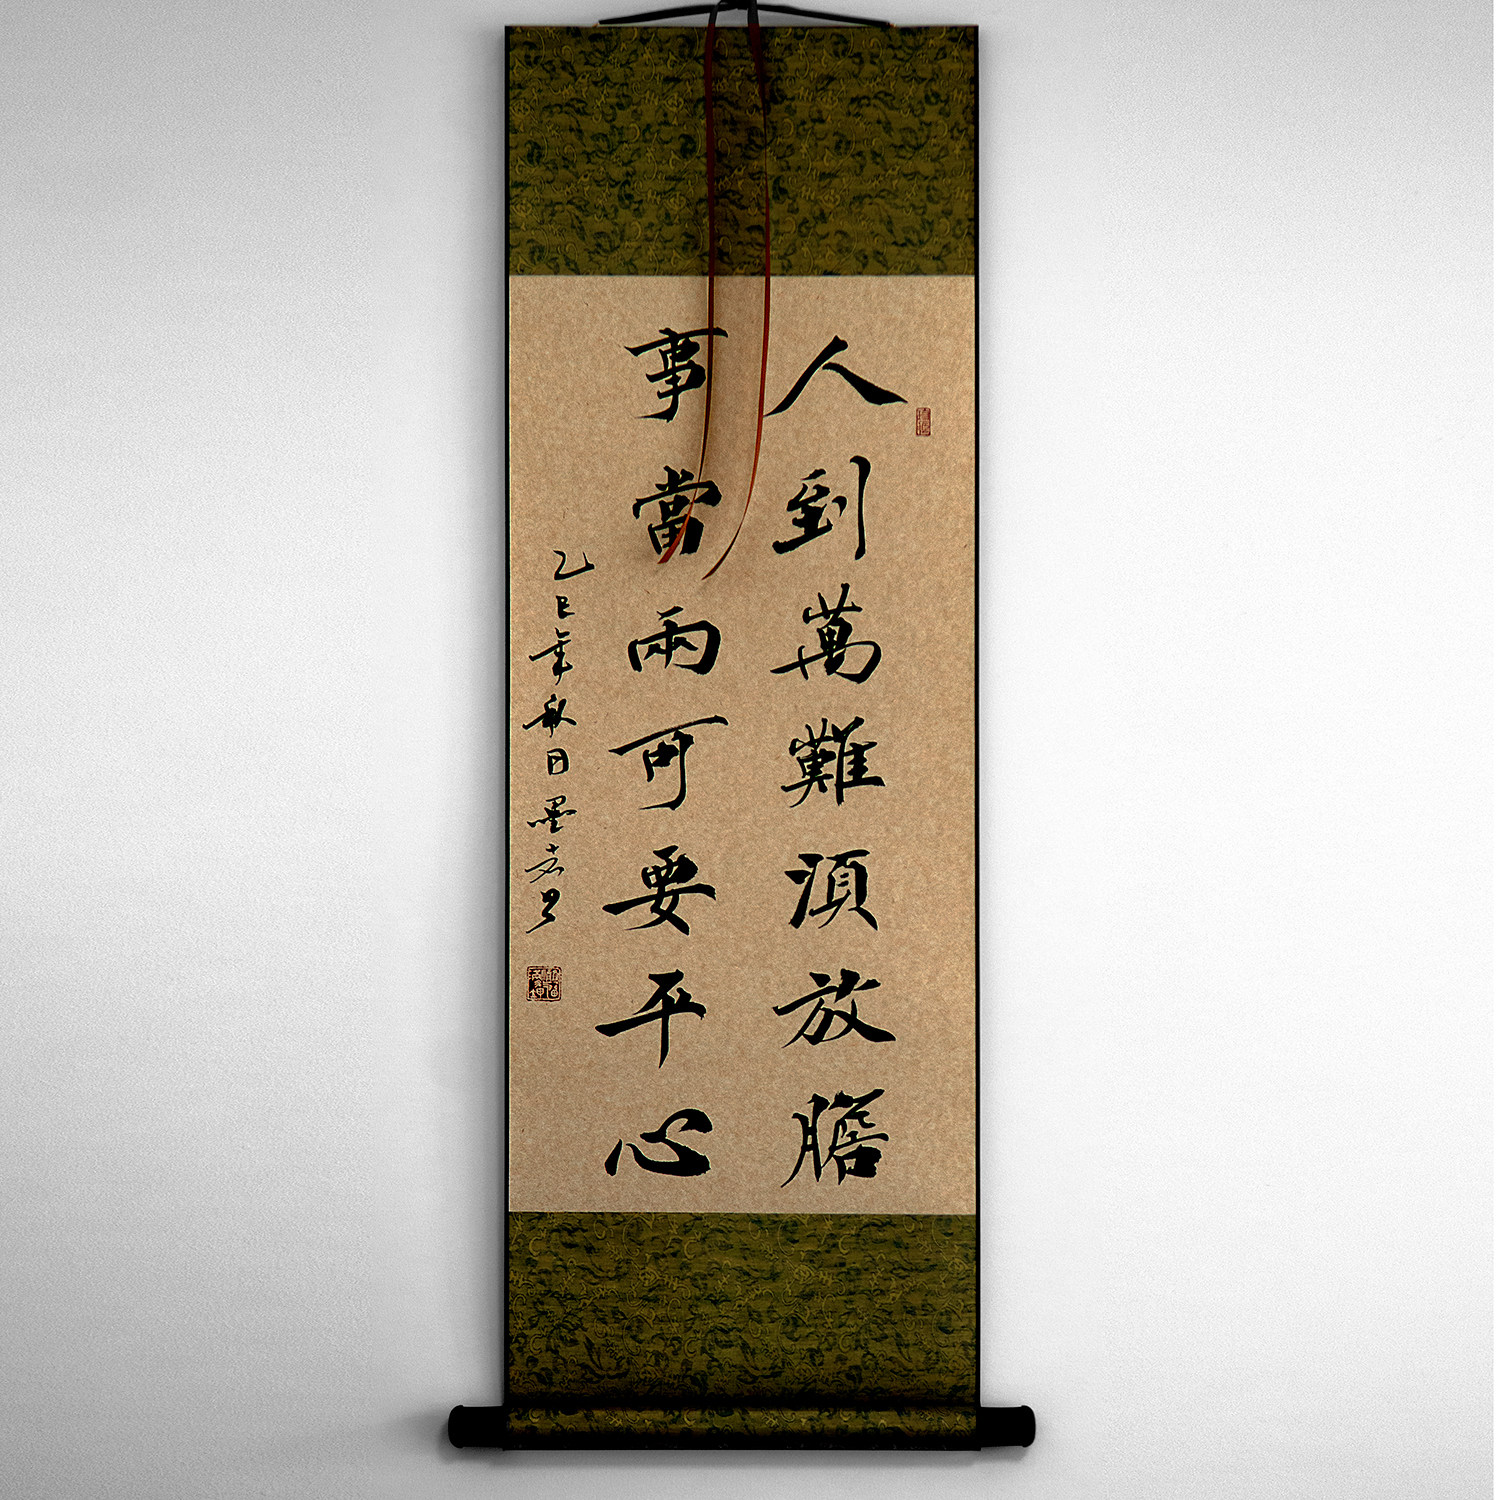 人到萬難須放膽
事當兩可要平心
乙巳年秋日墨